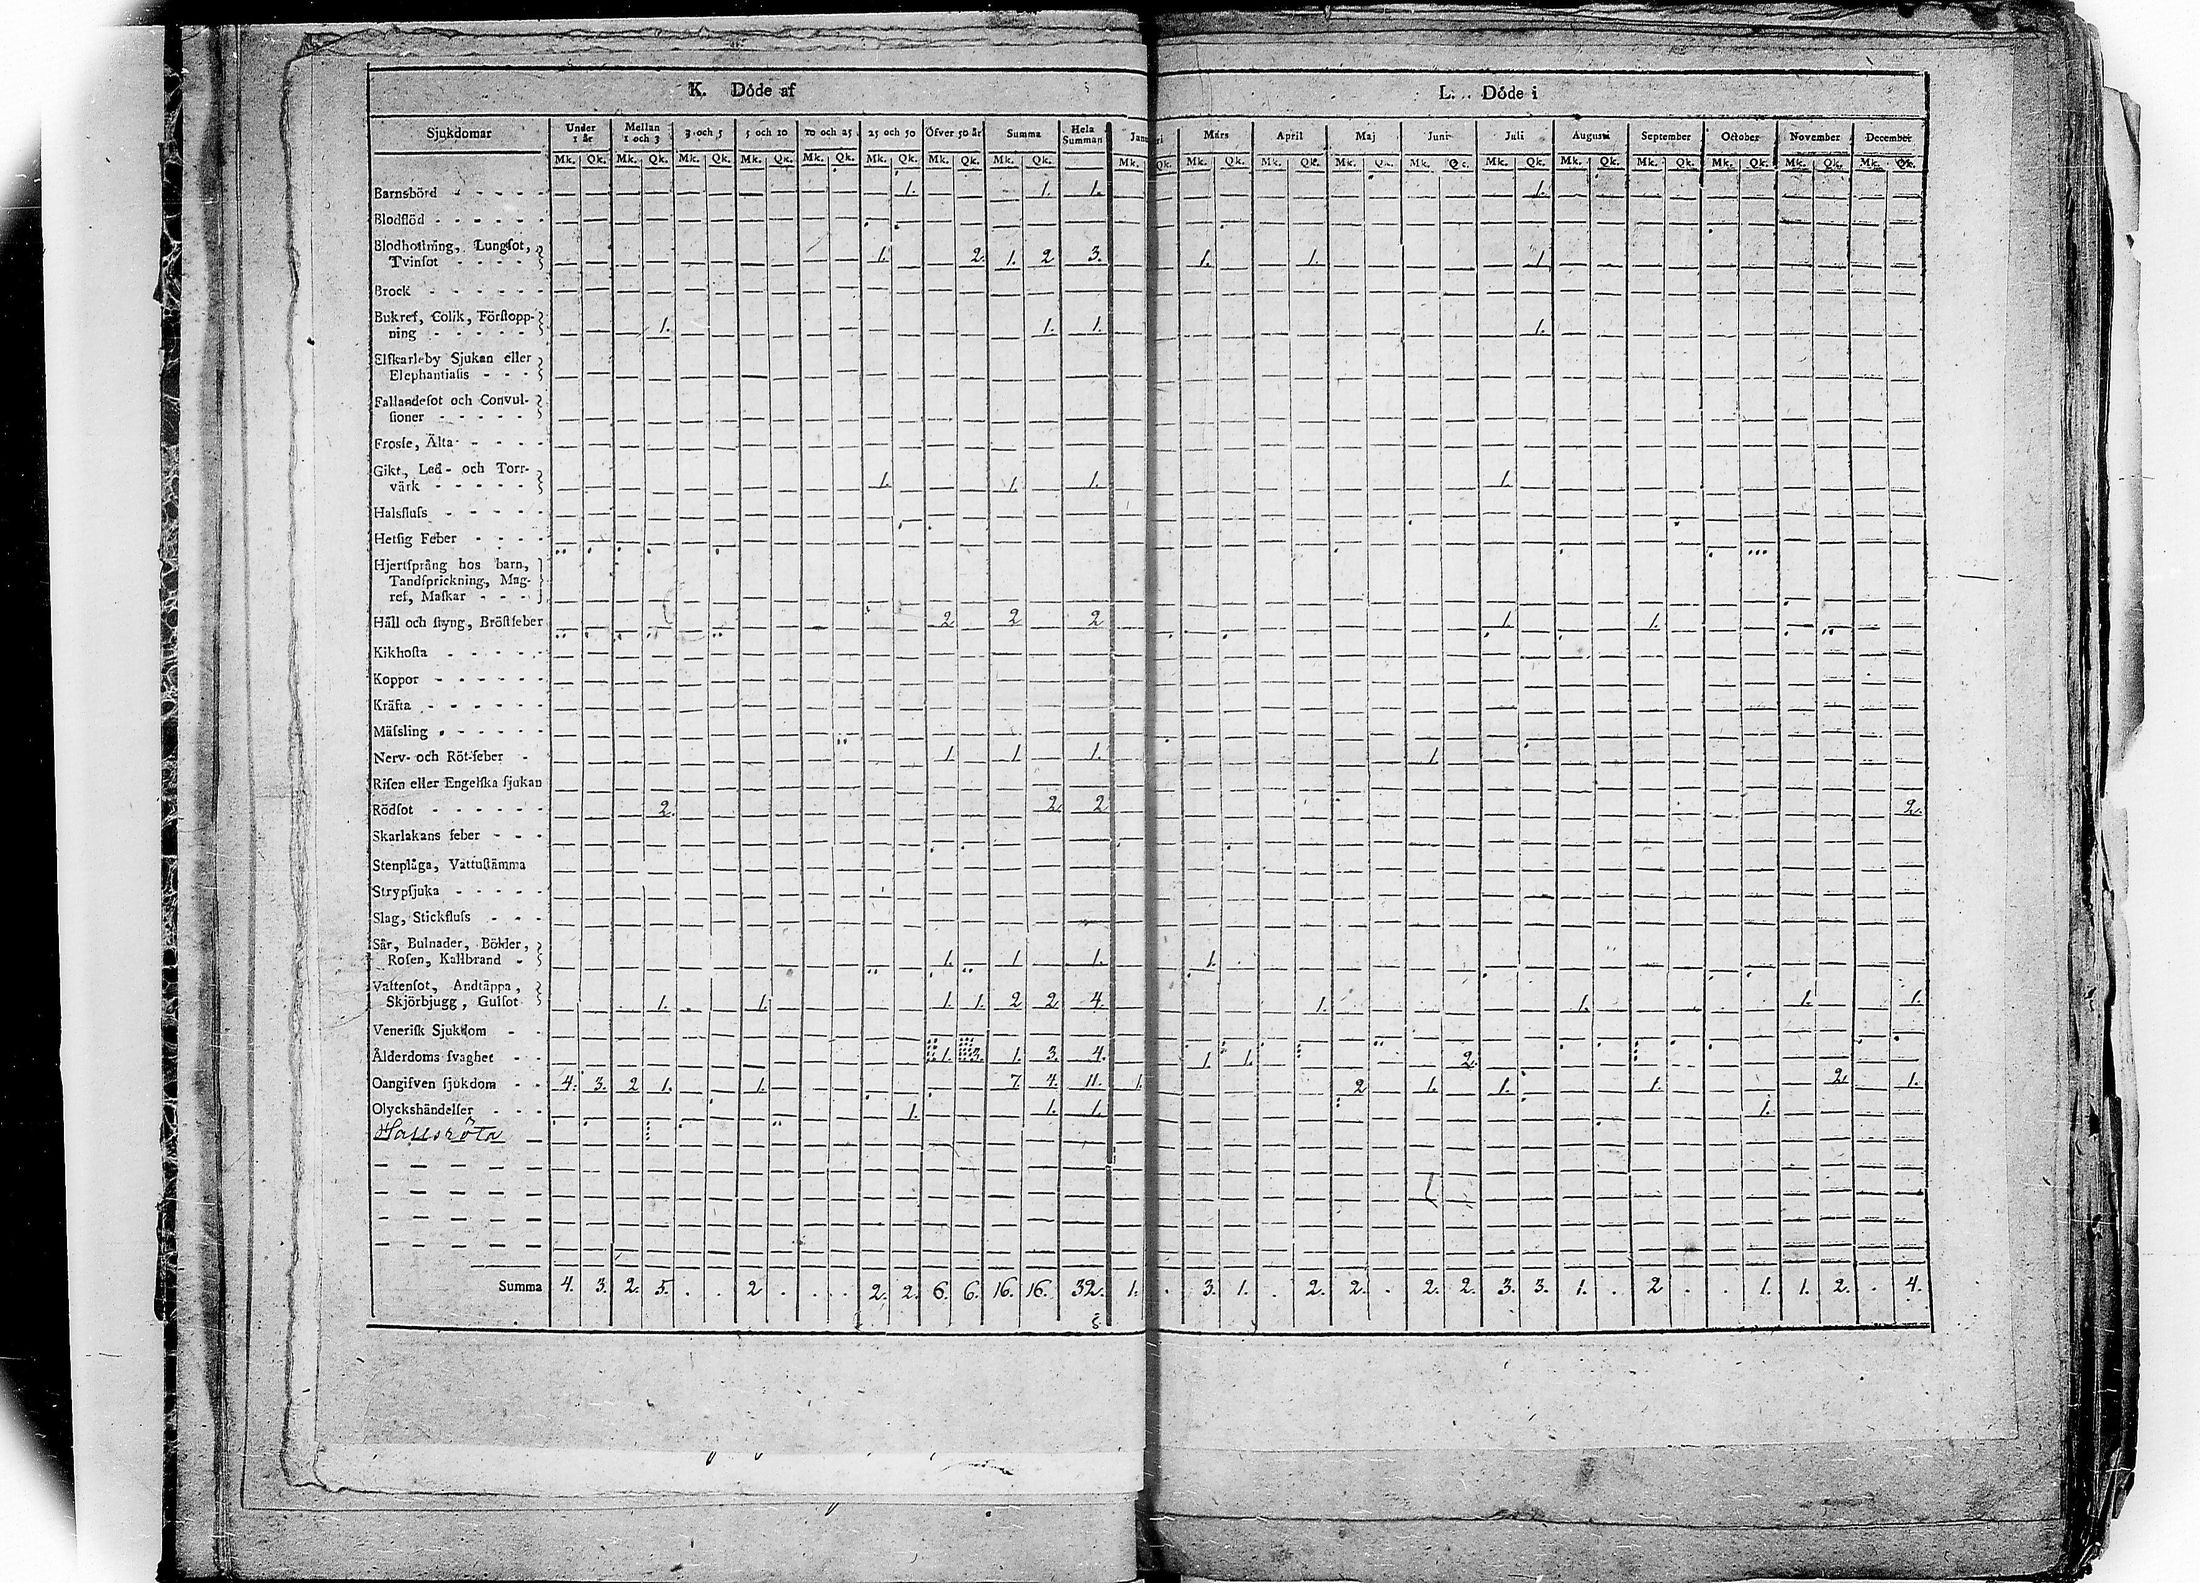 K. Döde af L. Döde i
Sjukdomar Under 1 år Mellan 1 och 3 3 och 5 5 och 10 10 och 25 25 och 50 Öfver 50 år Summa Hela Summan Mars April Maj Juni Juli Augusti September October November December
Mk. Qk. Mk. Qk. Mk. Qk. Mk. Qk. Mk. Qk. Mk. Qk. Mk. Qk. Mk. Qk. Mk. Qk. Mk. Qk. Mk. Qk. Mk. Qk. Mk. Qk. Mk. Qk. Mk. Qk. Mk. Qk. Mk. Qk. Mk. Qk. Mk. Qk.
Barnsbörd 1. 1. 1. 1.
Blodflöd
Blodhostning, Lungsot,
Tvinsot 1. 2. 1. 2 3. 1. 1. 1
Brock
Bukref, Colik, Förstopp-
ning 1. 1. 1. 1.
Elfkarleby Sjukan eller
Elephantiasis
Fallandesot och Convul-
sioner
Frosse, Älta
Gikt, Led- och Torr-
värk 1. 1. 1. 1.
Halsfluss
Hetsig Feber
Hjertsprång hos barn,
Tandsprickning, Mag-
ref, Maskar
Håll och styng, Bröstfeber 2 2 2 1. 1.
Kikhosta
Koppor
Kräfta
Mässling
Nerv- och Röt-feber 1 1 1. 1
Risen eller Engelska sjukan
Rödsot 2. 2. 2 2.
Skarlakans feber
Stenplåga, Vattustämma
Strypsjuka
Slag, Stickfluss
Sår, Bulnader, Bölder,
Rosen, Kallbrand 1. 1 1. 1.
Vattensot, Andtäppa,
Skjörbjugg, Gulsot 1. 1. 1. 1. 2 2 4. 1. 1. 1. 1.
Venerisk Sjukdom
Ålderdoms svaghet 1. 3. 1. 3. 4. 1. 1. 2.
Oangifven sjukdom 4. 3. 2 1. 1. 7. 4. 11. 1. 2 1. 1. 1. 2. 1.
Olyckshändelser 1. 1. 1. 1.
Summa 4. 3. 2. 5. . . 2 . . . 2. 2. 6. 6. 16. 16. 32. 1. . 3. 1. . 2. 2. . 2. 2. 3. 3. 1. . 2 . . 1. 1. 2. . 4.